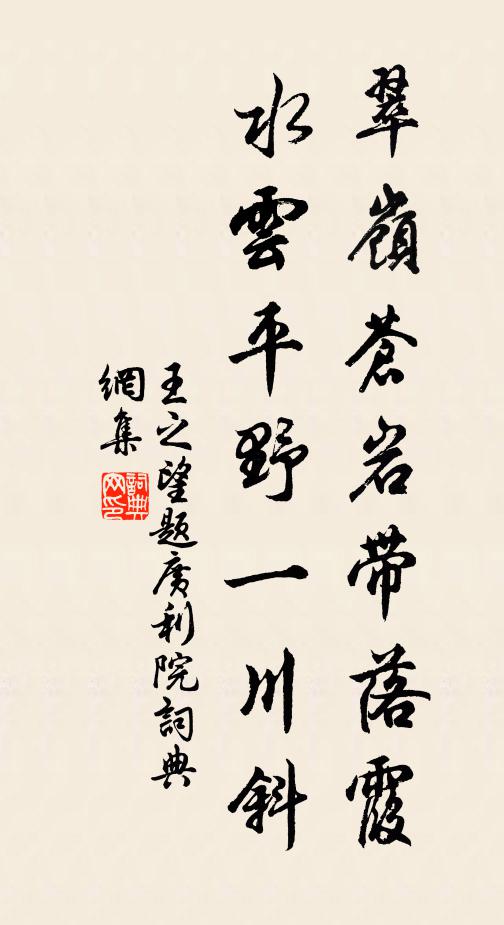 翠嶺蒼岩帶落霞
水雲平野一川斜
王之望題廣利院詞典
網集
詞典網印